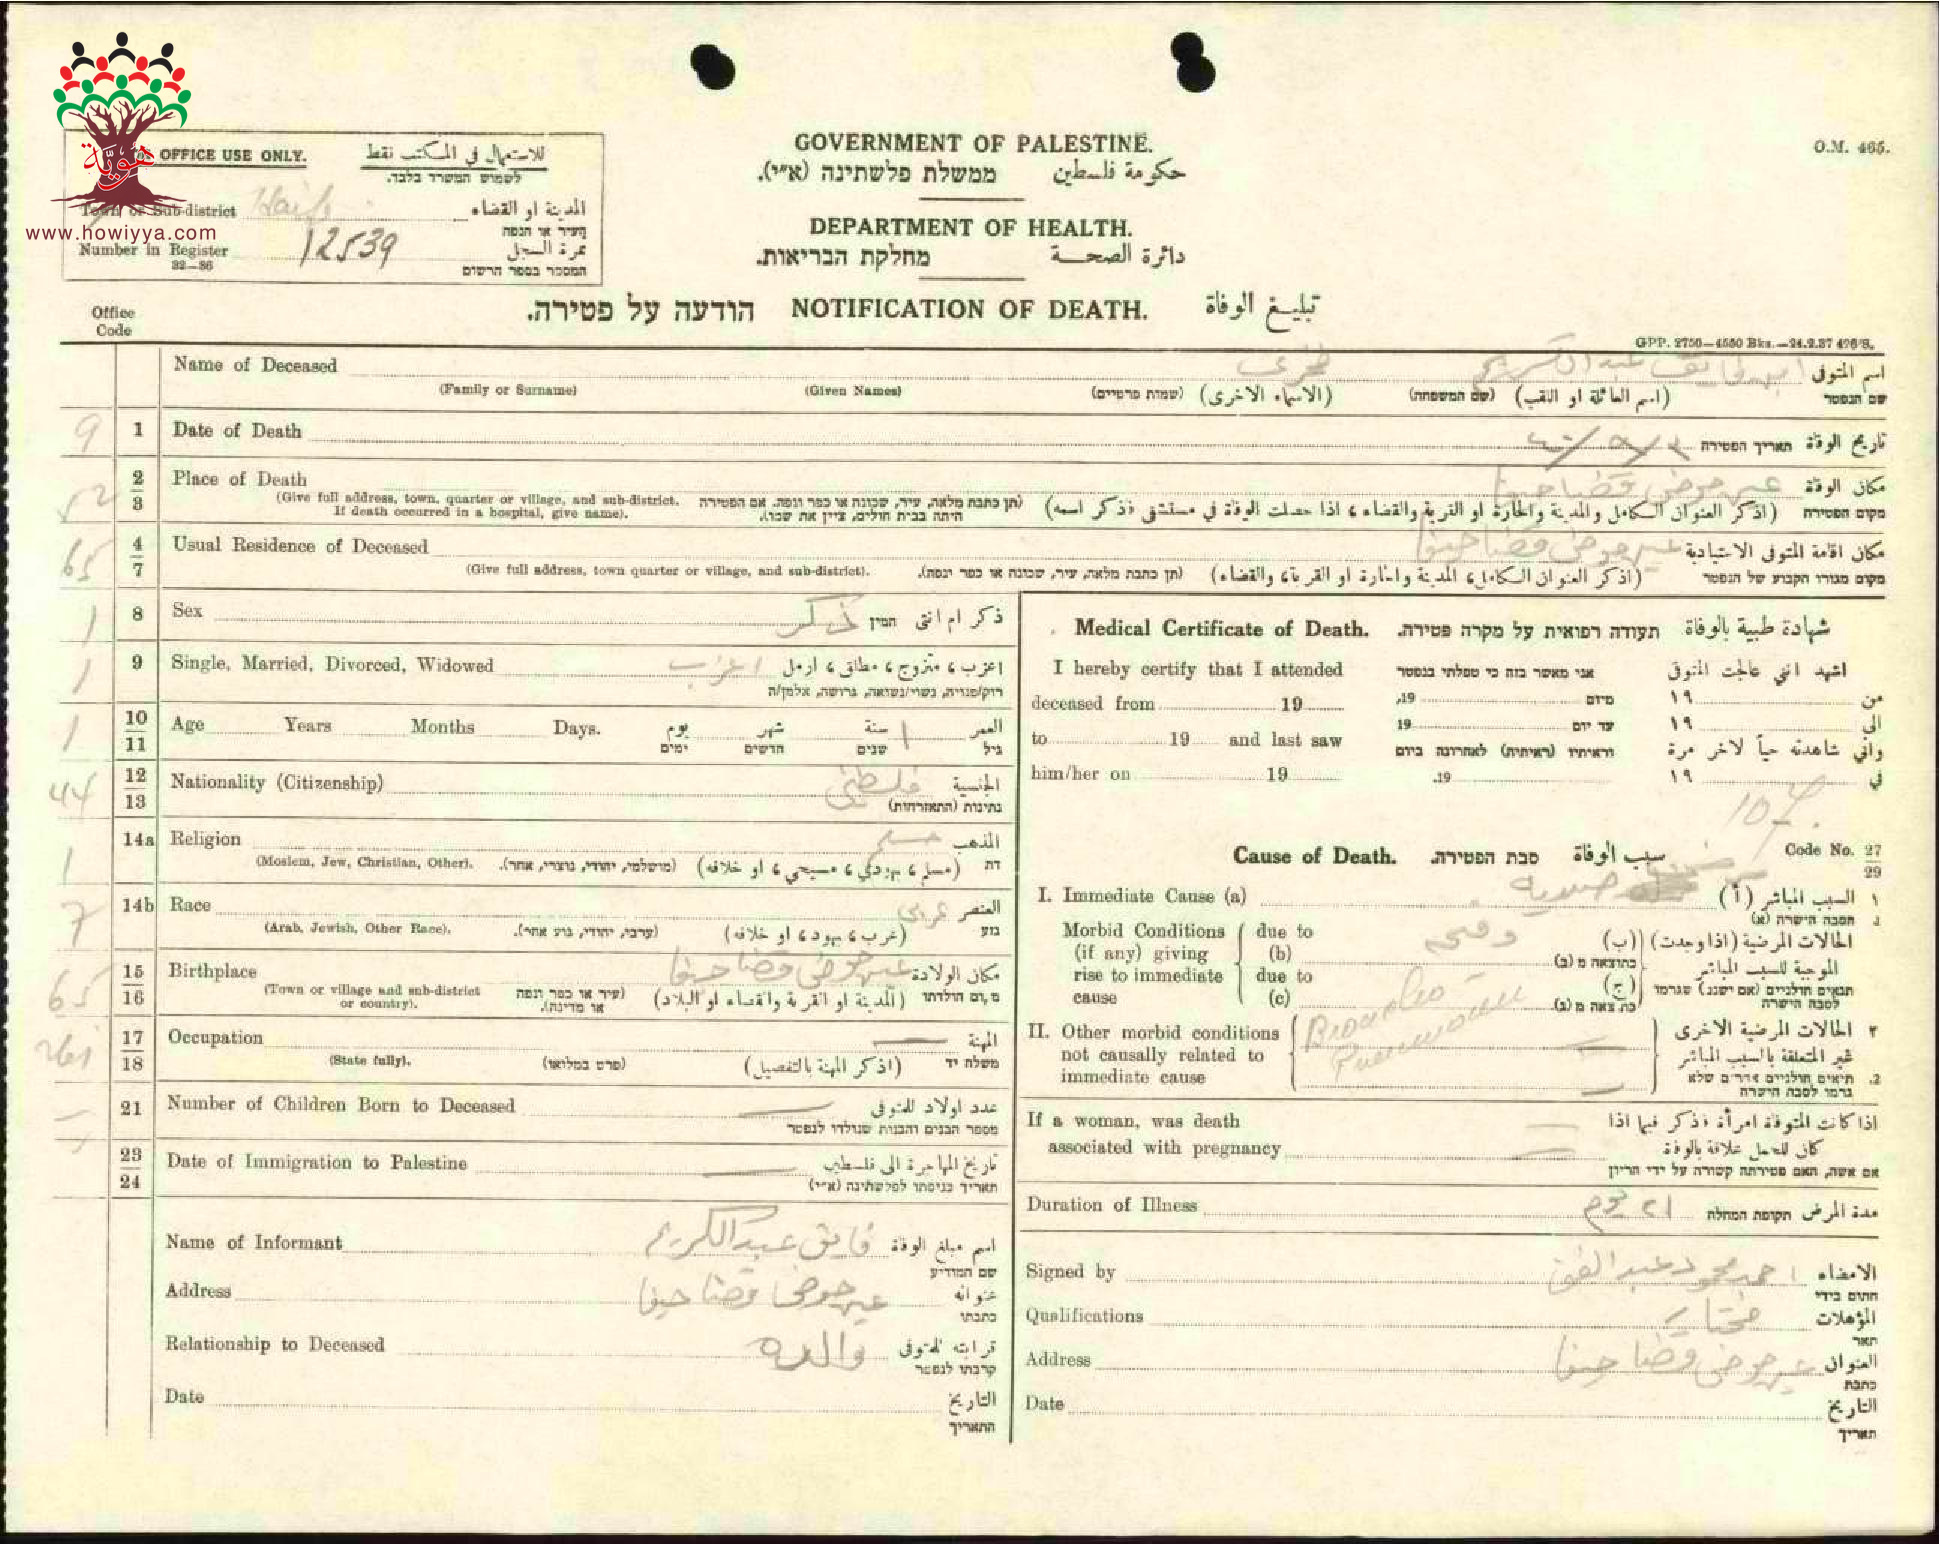 هوية
www.howiyya.com
OFFICE USE ONLY. للاستعمال في المكتب فقط
לשמוש המשרד בלבד.
Town or Sub-district Haifa المدينة او القضاء
העיר או הנפה
Number in Register 12539 نمرة السجل
32—36 המספר בספר הרשום
GOVERNMENT OF PALESTINE.
ממשלת פלשתינה (א״י). حكومة فلسطين
DEPARTMENT OF HEALTH.
מחלקת הבריאות. دائرة الصحة
O.M. 465.
הודעה על פטירה. NOTIFICATION OF DEATH. تبليغ الوفاة
Office
Code
GPP. 2750—4550 Bks.—24.2.37 426/S.
Name of Deceased فايق عبد الكريم اسم المتوفى
(Family or Surname) (Given Names) (שמות פרטיים) (الاسماء الاخرى) (שם המשפחה) (اسم العائلة او اللقب) שם הנפטר
9 1 Date of Death תאריך הפטירה تاريخ الوفاة
52 2 3 Place of Death عين حوض قضا حيفا مكان الوفاة
(Give full address, town, quarter or village, and sub-district. (תן כתבת מלאה, עיר, שכונה או כפר ונפה. אם הפטירה (اذكر العنوان الكامل والمدينة والحارة او القرية والقضاء، اذا حصلت الوفاة في مستشفى فذكر اسمه) מקום הפטירה
If death occurred in a hospital, give name). היתה בבית חולים, ציין את שמו).
65 4 7 Usual Residence of Deceased عين حوض قضا حيفا مكان اقامة المتوفى الاعتيادية
(Give full address, town quarter or village, and sub-district). (תן כתבת מלאה, עיר, שכונה או כפר ונפה). (اذكر العنوان الكامل، المدينة والحارة او القرية، والقضاء) מקום מגורו הקבוע של הנפטר
1 8 Sex ذكر המין ذكر ام انثى
1 9 Single, Married, Divorced, Widowed اعزب اعزب، متزوج، مطلق، ارمل
רוק/פנויה, נשוי/נשואה, גרושה, אלמן/ה
1 10 11 Age Years Months Days. يوم شهر ١ سنة العمر
ימים חדשים שנים גיל
44 12 13 Nationality (Citizenship) فلسطيني الجنسية
נתינות (התאזרחות)
1 14a Religion مسلم المذهب
(Moslem, Jew, Christian, Other). (מושלמי, יהודי, נוצרי, אחר). (مسلم، يهودي، مسيحي، او خلافه) דת
7 14b Race عربي العنصر
(Arab, Jewish, Other Race). (ערבי, יהודי, גזע אחר). (عرب، يهود، او خلافه) גזע
65 15 16 Birthplace عين حوض قضا حيفا مكان الولادة
(Town or village and sub-district or country). (עיר או כפר ונפה או מדינה). (المدينة او القرية والقضاء او البلاد) מקום הולדתו
17 18 Occupation المهنة
(State fully). (פרט במלואו) (اذكر المهنة بالتفصيل) משלח יד
21 Number of Children Born to Deceased عدد اولاد المتوفى
מספר הבנים והבנות שנולדו לנפטר
23 24 Date of Immigration to Palestine تاريخ المهاجرة الى فلسطين
תאריך כניסתו לפלשתינה (א״י)
Name of Informant فايق عبد الكريم اسم مبلغ الوفاة
שם המודיע
Address عين حوض قضا حيفا عنوانه
כתבתו
Relationship to Deceased والده قرابته للمتوفى
קרבתו לנפטר
Date التاريخ
התאריך
Medical Certificate of Death. תעודה רפואית על מקרה פטירה. شهادة طبية بالوفاة
I hereby certify that I attended אני מאשר בזה כי טפלתי בנפטר اشهد انني عالجت المتوفى
deceased from 19 מיום 19, من ١٩
to 19 and last saw עד יום 19 الى ١٩
וראיתיו (ראיתיה) לאחרונה ביום واني شاهدته حياً لآخر مرة
him/her on 19 19. في ١٩
107.
Cause of Death. סבת הפטירה. سبب الوفاة Code No. 27 29
I. Immediate Cause (a) السبب المباشر (أ) ١
הסבה הישרה (א) .1
Morbid Conditions due to الحالات المرضية (اذا وجدت) (ب)
(if any) giving (b) כתוצאה מ (ב) الموجبة للسبب المباشر
rise to immediate due to (ج) תנאים חולניים (אם ישנם) שגרמו
cause (c) כתוצאה מ (ג). לסבה הישרה
Broncho Pneumonia
II. Other morbid conditions الحالات المرضية الاخرى ٢
not causally related to غير المتعلقة بالسبب المباشر
immediate cause תנאים חולניים אחרים שלא .2
גרמו לסבה הישרה
If a woman, was death اذا كانت المتوفاة امرأة فذكر فيما اذا
associated with pregnancy كان للحمل علاقة بالوفاة
אם אשה, האם פטירתה קשורה על ידי הריון
Duration of Illness ٢١ يوم תקופת המחלה مدة المرض
Signed by احمد محمود عبد الغني الامضاء
חתום בידי
Qualifications مختار المؤهلات
תאר
Address عين حوض قضا حيفا العنوان
כתבת
Date التاريخ
תאריך